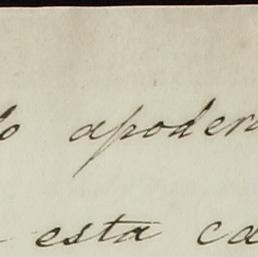 apoder
esta ca